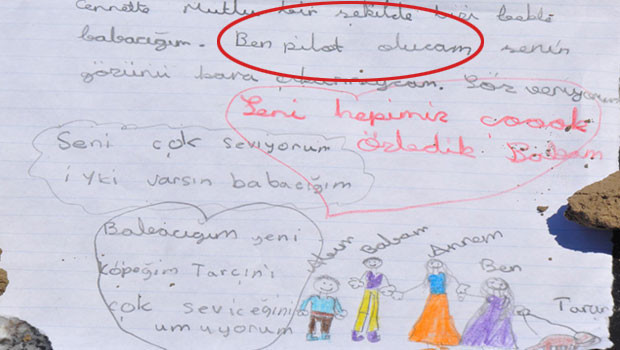 Cennette mutlu bir şekilde bizi bekle
babacığım. Ben pilot olucam senin
gözünü kara çıkarmıycam. Söz veriyorum
Seni hepimiz çoook
özledik Babam
Seni çok seviyorum
iyki varsın babacığım
Babacığım yeni
köpeğim Tarçını
çok seviceğini
umuyorum
Babam
Annem
Ben
Tarçın